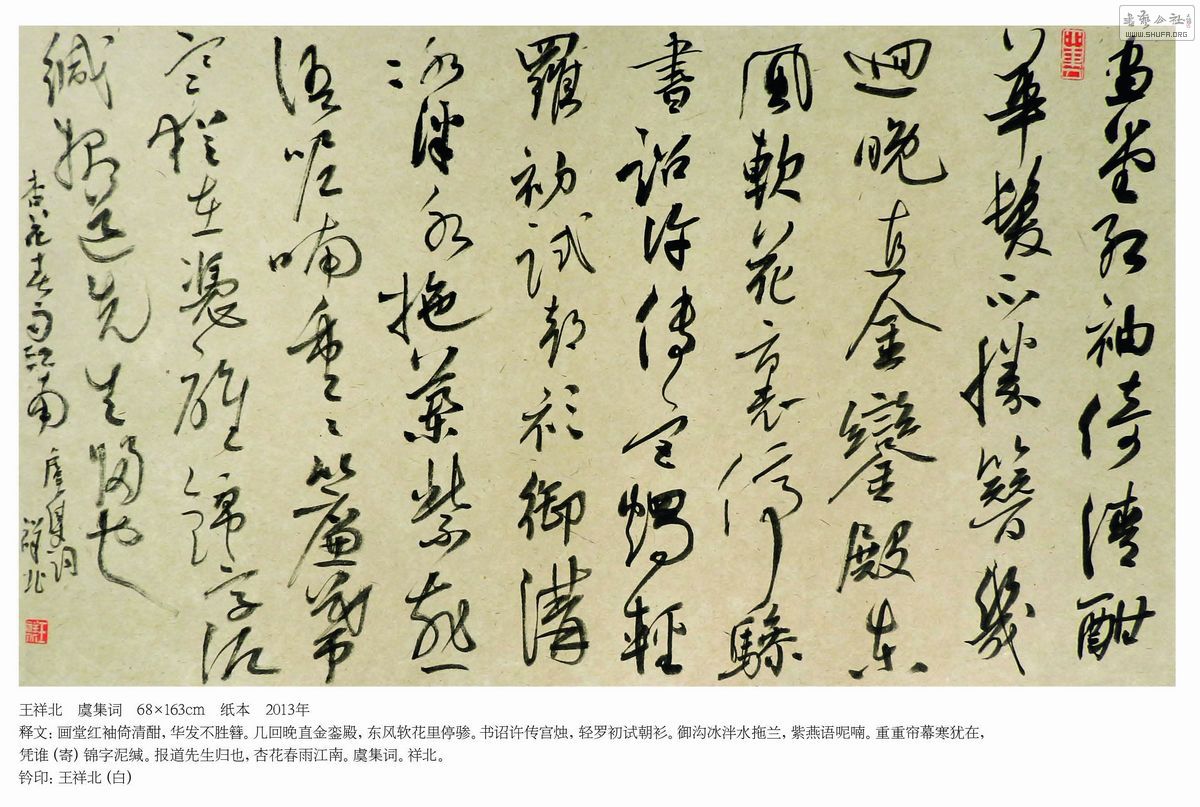 書藝公社
WWW.SHUFA.ORG
畫堂紅袖倚清酣
華髮不勝簪幾
迴晚直金鑾殿東
風軟花裏停驂
書詔許傳宮燭輕
羅初試朝衫御溝
冰泮水拖藍紫燕
語呢喃重重簾幕
寒猶在憑誰錦字泥
緘報道先生歸也
杏花春雨江南 虞集詞 祥北
王祥北 虞集词 68×163cm 纸本 2013年
释文: 画堂红袖倚清酣, 华发不胜簪。几回晚直金銮殿, 东风软花里停骖。书诏许传宫烛, 轻罗初试朝衫。御沟冰泮水拖兰, 紫燕语呢喃。重重帘幕寒犹在,
凭谁 (寄) 锦字泥缄。报道先生归也, 杏花春雨江南。虞集词。祥北。
钤印: 王祥北 (白)